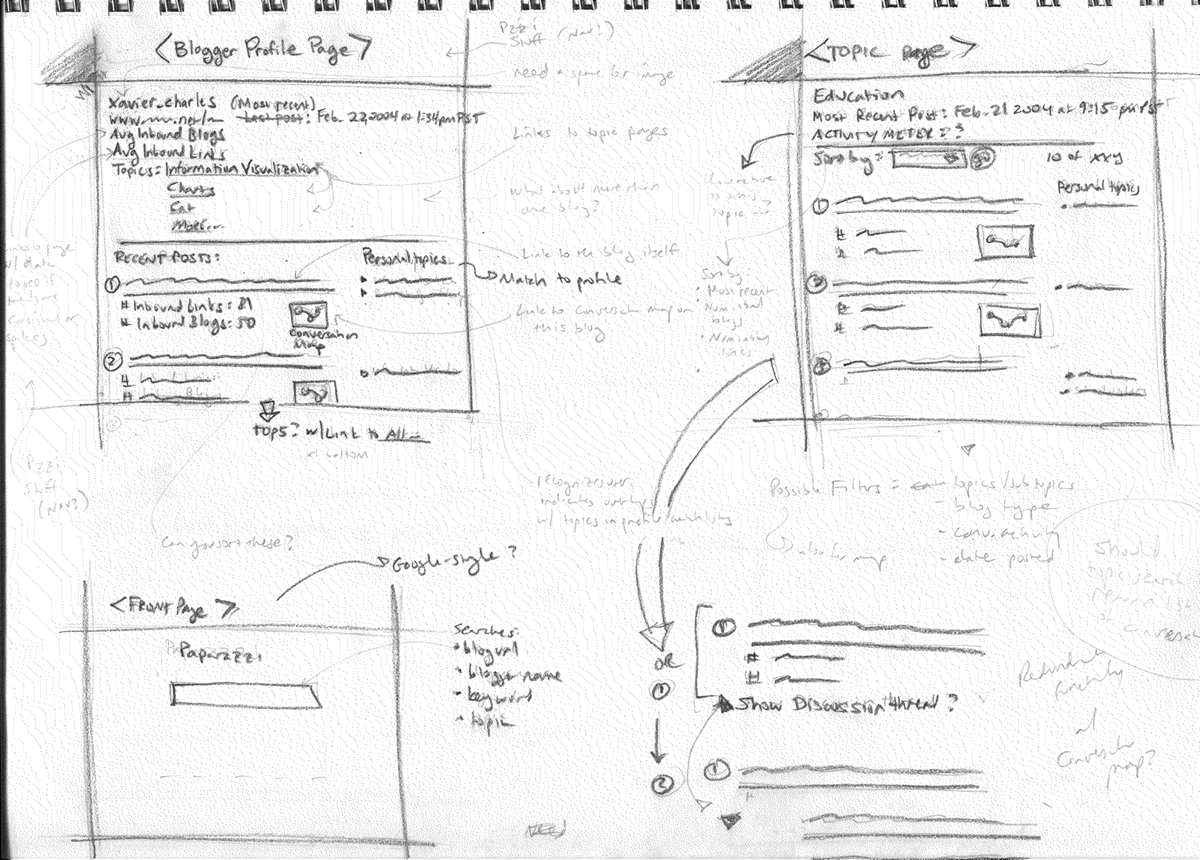 <Blogger Profile Page>
Pzzi
Stuff (Nav?)
need a space for image
Xavier_charles (Most recent)
Last Post: Feb. 22, 2004 at 1:34 pm PST
Avg Inbound Blogs
Avg Inbound Links
Topics = Information Visualization
Charts
Cat
More...
Links to topic pages
What about more than
one blog?
RECENT POSTS:
Personal topics
Link to the blog itself
Match to profile
1
# Inbound Links: 81
# Inbound Blogs: 50
Conversation
Map
Link to conversation map on
this blog
2
#
#
top 5? w/ Link to All
at bottom
Pzzi
Stuff
(Nav?)
<TOPIC page>
Education
Most Recent Post: Feb. 21 2004 at 9:15 pm PST
ACTIVITY METER = ?
Sort by = GO 10 of xxy
Personal topics
1
#
#
2
#
#
3
topic
Sort by:
• Most recent
blogs
links
recognizes user,
indicates overlap
w/ topics in profile
Possible Filters = topics/subtopics
- blog type
- conv. activity
- date posted
also for map
Can you sort these?
Google-style?
<FRONT Page>
Paparazzi
Searches:
• blog url
• blogger name
• keyword
• topic
OR
1
2
1
#
#
Show Discussion thread?
1
Should
topic search
return list
of conversations
Redundant
functionality
w/
Conversation
map?
Need